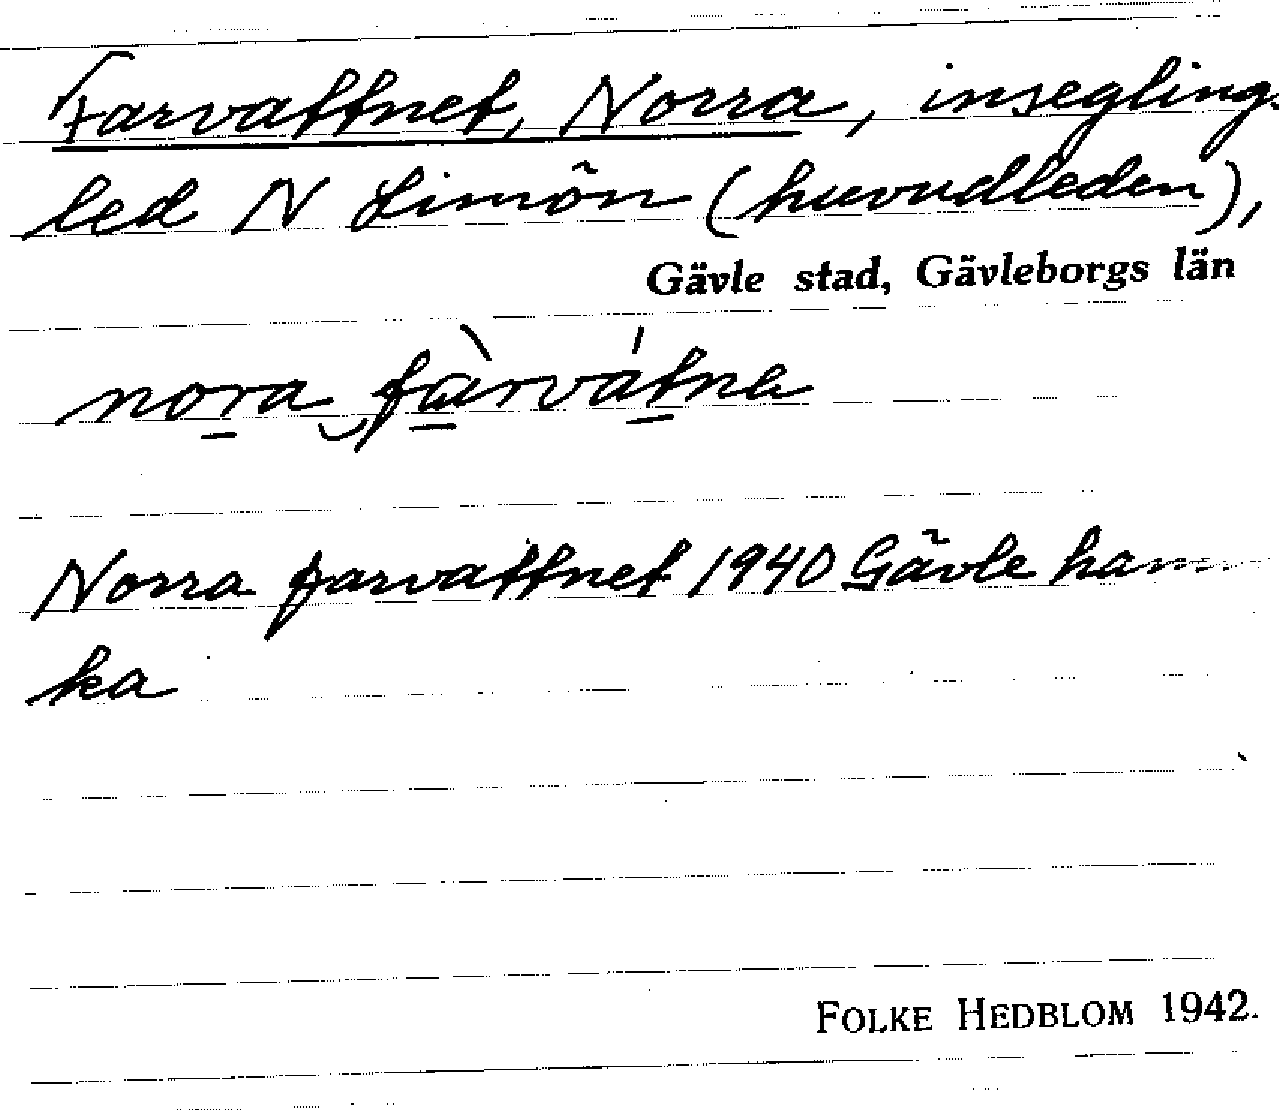 Farvattnet, Norra, inseglings
led N Limön (huvudleden),
Gävle stad, Gävleborgs län
nora fàrvátna
Norra farvattnet 1940 Gävle hamn
ka
FOLKE HEDBLOM 1942.